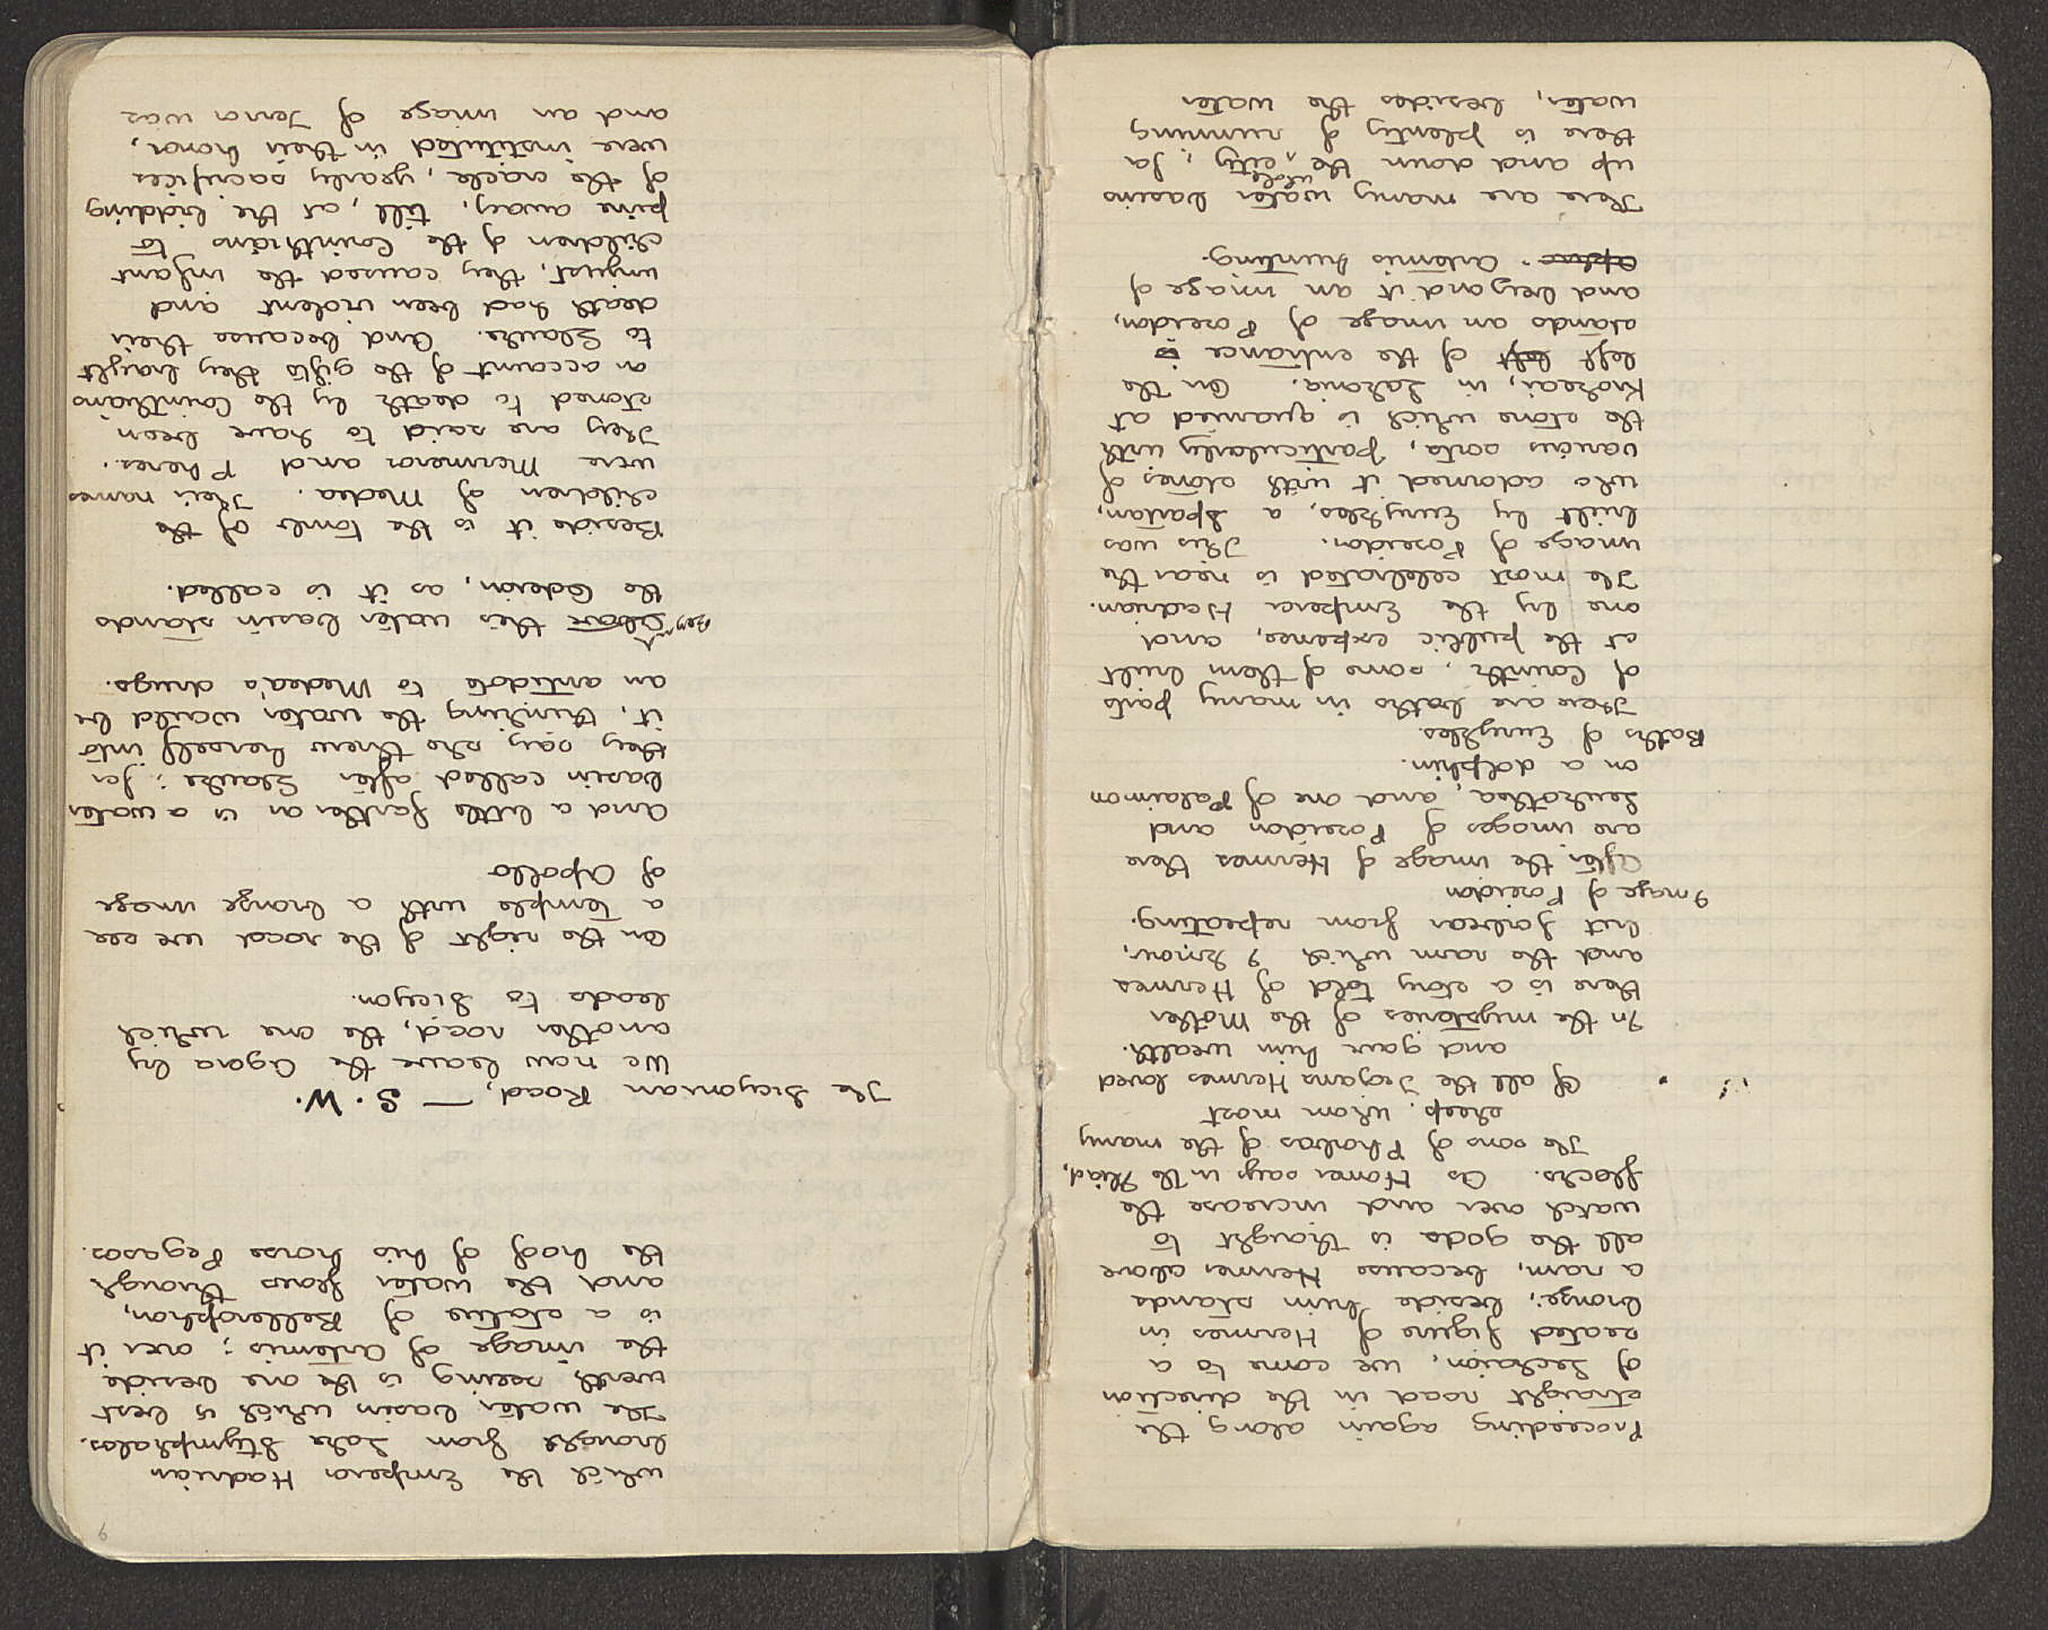 Proceeding again along the
straight road in the direction
of Lechaion, we come to a
seated figure of Hermes in
bronze; beside him stands
a ram, because Hermes above
all the gods is thought to
watch over and increase the
flocks. As Homer says in the Iliad,
The sons of Phorbas of the many
sheep, whom most
Of all the Trojans Hermes loved
and gave him wealth.
In the mysteries of the Mother
there is a story told of Hermes
and the ram which I know,
but forbear from repeating.
Image of Poseidon
After the image of Hermes there
are images of Poseidon and
Leukothea, and one of Palaimon
on a dolphin.
Baths of Eurykles.
There are baths in many parts
of Corinth, some of them built
at the public expense, and
one by the Emperor Hadrian.
The most celebrated is near the
image of Poseidon. This was
built by Eurykles, a Spartan,
who adorned it with stones of
various sorts, particularly with
the stone which is quarried at
Krokeai, in Lakonia. On the
left left of the entrance is
stands an image of Poseidon,
and beyond it an image of
Artemis hunting.
There are many water basins
up and down the whole city, for
there is plenty of running
water, besides the water
6
which the Emperor Hadrian
brought from Lake Stymphalos.
The water basin which is best
worth seeing is the one beside
the image of Artemis; over it
is a statue of Bellerophon,
and the water flows through
the hoof of his horse Pegasos.
The Sicyonian Road, — S. W.
We now leave the Agora by
another road, the one which
leads to Sicyon.
On the right of the road we see
a temple with a bronze image
of Apollo
And a little farther on is a water
basin called after Glauke; for
they say she threw herself into
it, thinking the water would be
an antidote to Medea's drugs.
Beyond Above this water basin stands
the Odeion, as it is called.
Beside it is the tomb of the
children of Medea. Their names
were Mermeros and Pheres.
They are said to have been
stoned to death by the Corinthians
on account of the gifts they brought
to Glauke. And because their
death had been violent and
unjust, they caused the infant
children of the Corinthians to
pine away, till, at the bidding
of the oracle, yearly sacrifices
were instituted in their honor,
and an image of Terror was